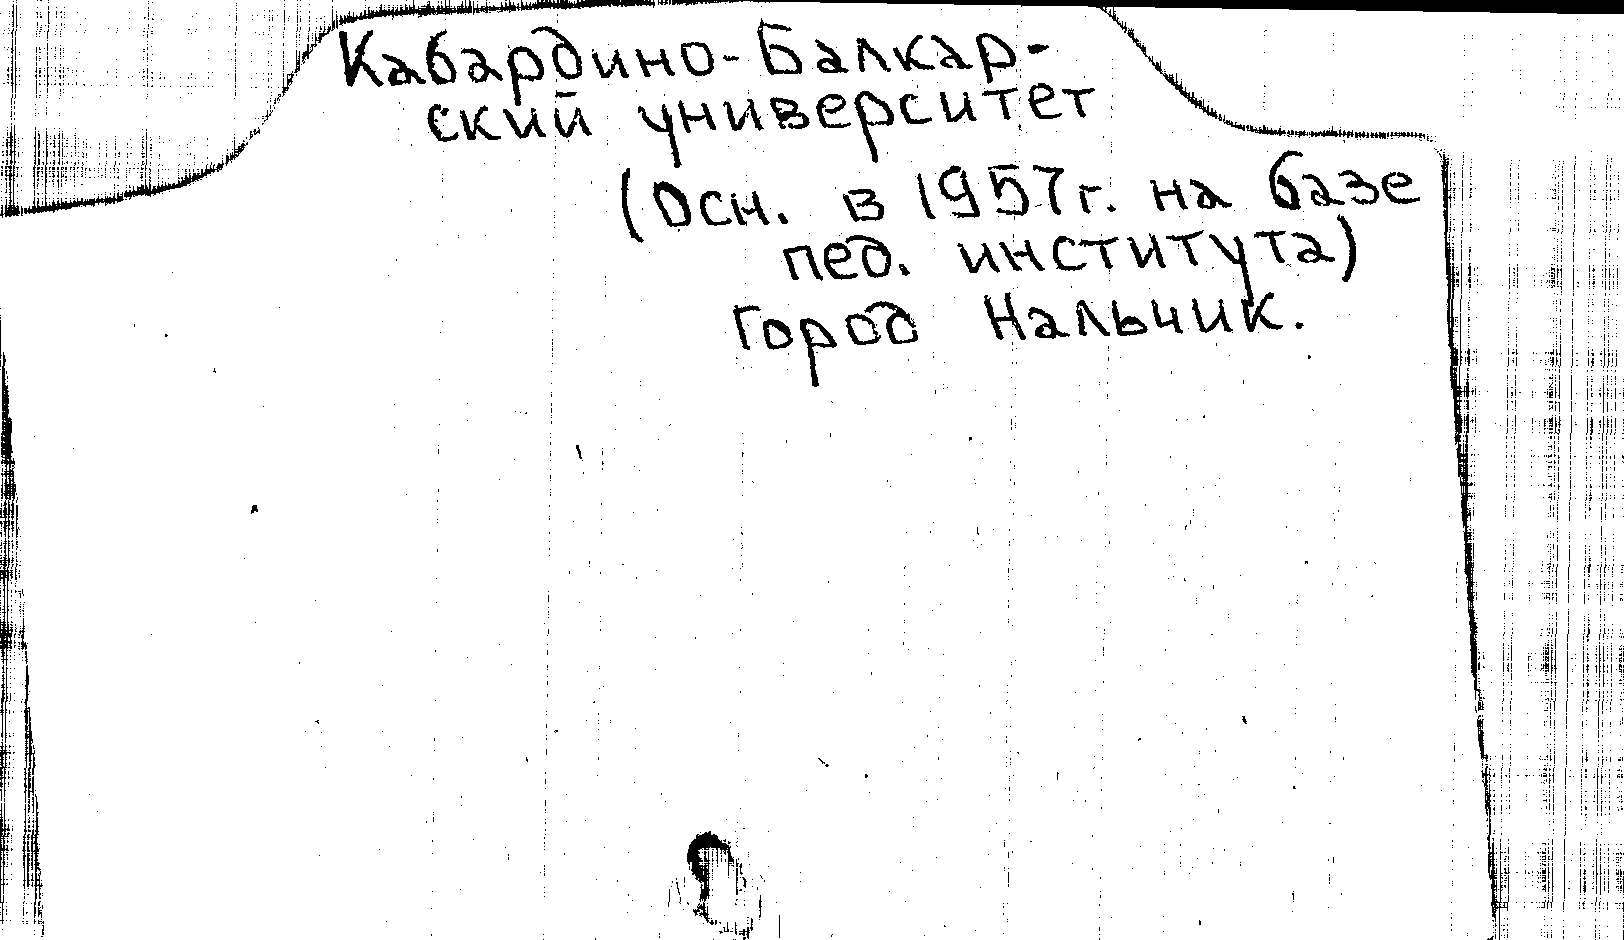 Кабардино-Балкар-
ский университет
(Осн. в 1957г. на базе
пед. института)
Город Нальчик.